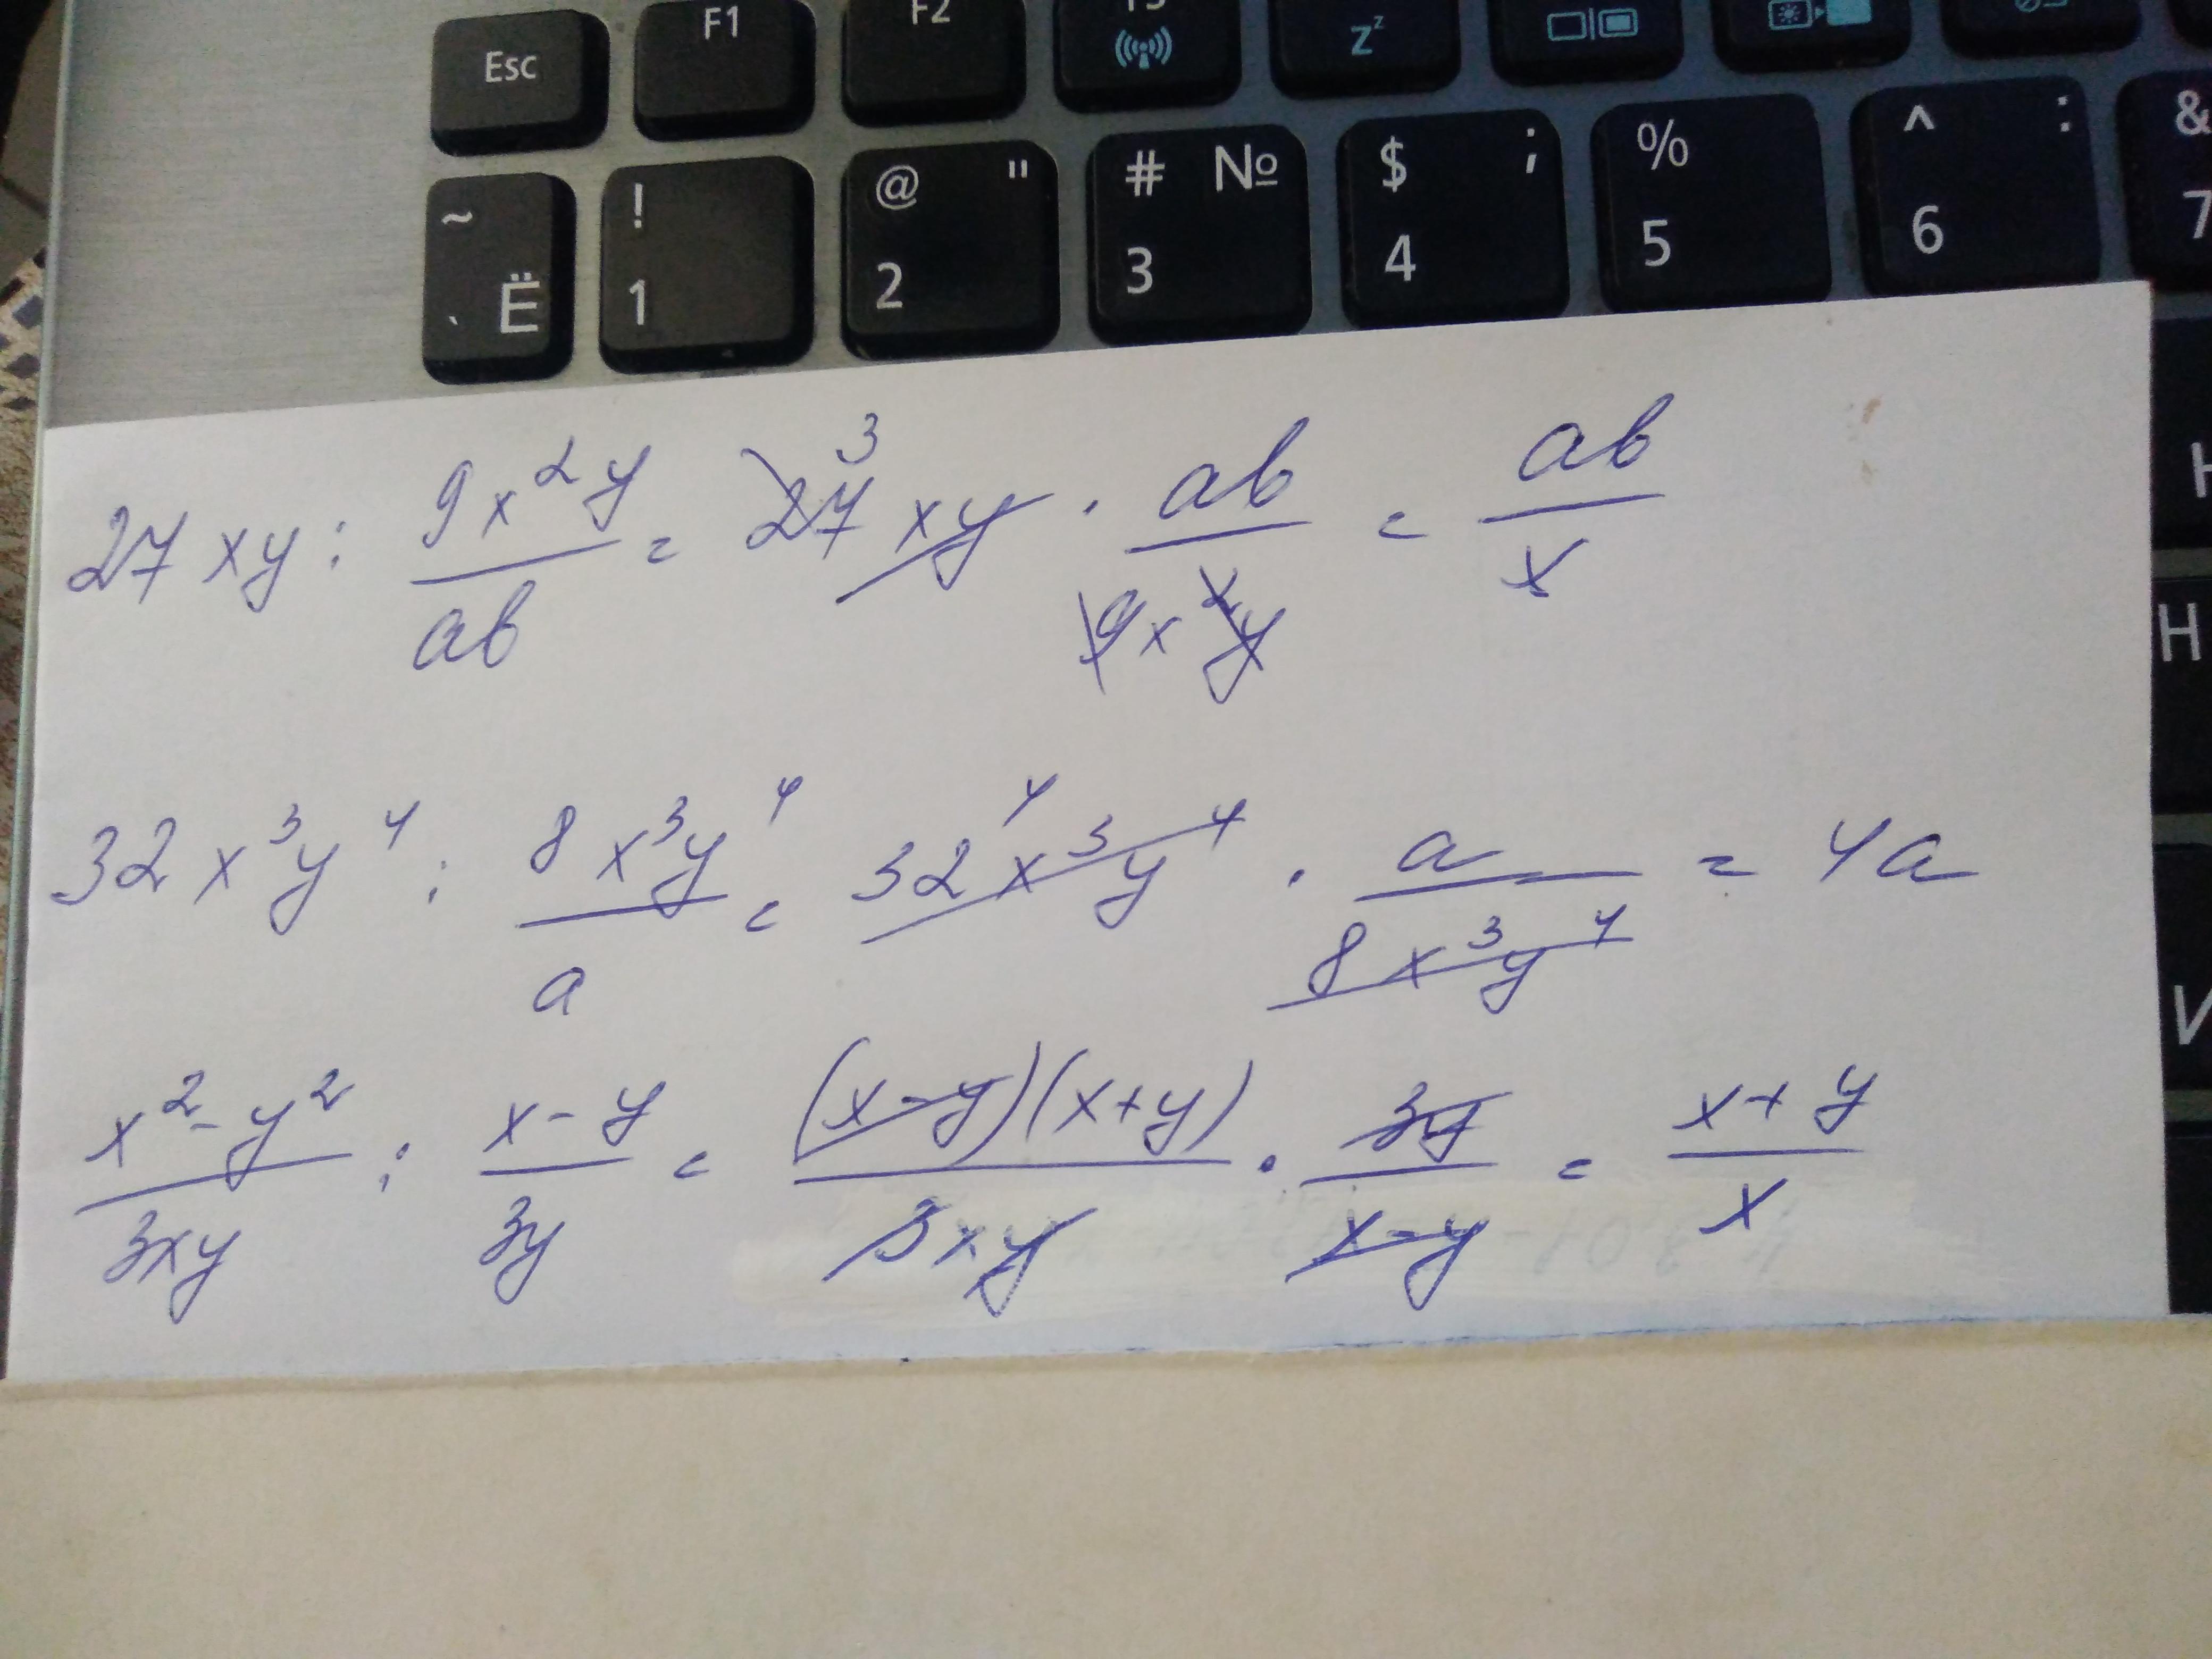 Esc F1 F2 F3 zᶻ
~ ` Ё ! 1 @ " 2 # № 3 $ ; 4 % 5 ^ : 6 & 7
27xy : 9x²y/ab = 27³xy · ab/9x²y = ab/x
32x³y⁴ : 8x³y⁴/a = 32⁴x³y⁴ · a/8x³y⁴ = 4a
(x²-y²)/3xy : (x-y)/3y = (x-y)(x+y)/3xy · 3y/(x-y) = (x+y)/x